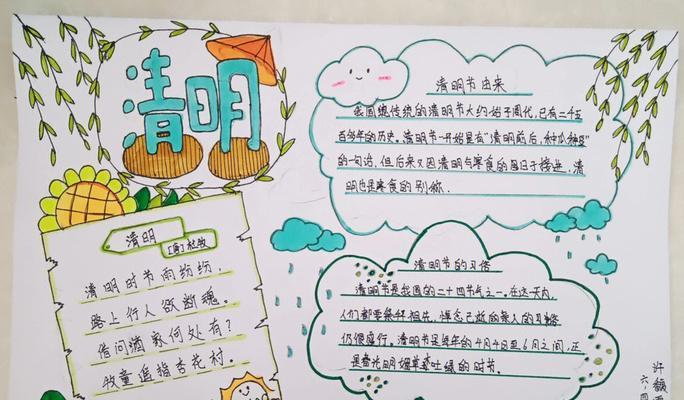 清明
清明
[唐]杜牧
清明时节雨纷纷,
路上行人欲断魂。
借问酒家何处有?
牧童遥指杏花村。
清明节由来
我国传统的清明节大约始于周代,已有二千五
百多年的历史。清明节一开始是有"清明前后,种瓜种豆"
的一句话,但后来又因清明与寒食的日子接近,清
明也是寒食的别称.
清明节的习俗
清明节是我国的二十四节气之一。在这一天内,
人们都要祭拜祖先,悼念已逝的亲人的习俗
仍很盛行。清明节是每年的4月4日至6日之间,正
是春光明媚草木吐绿的时节。
许
六.四